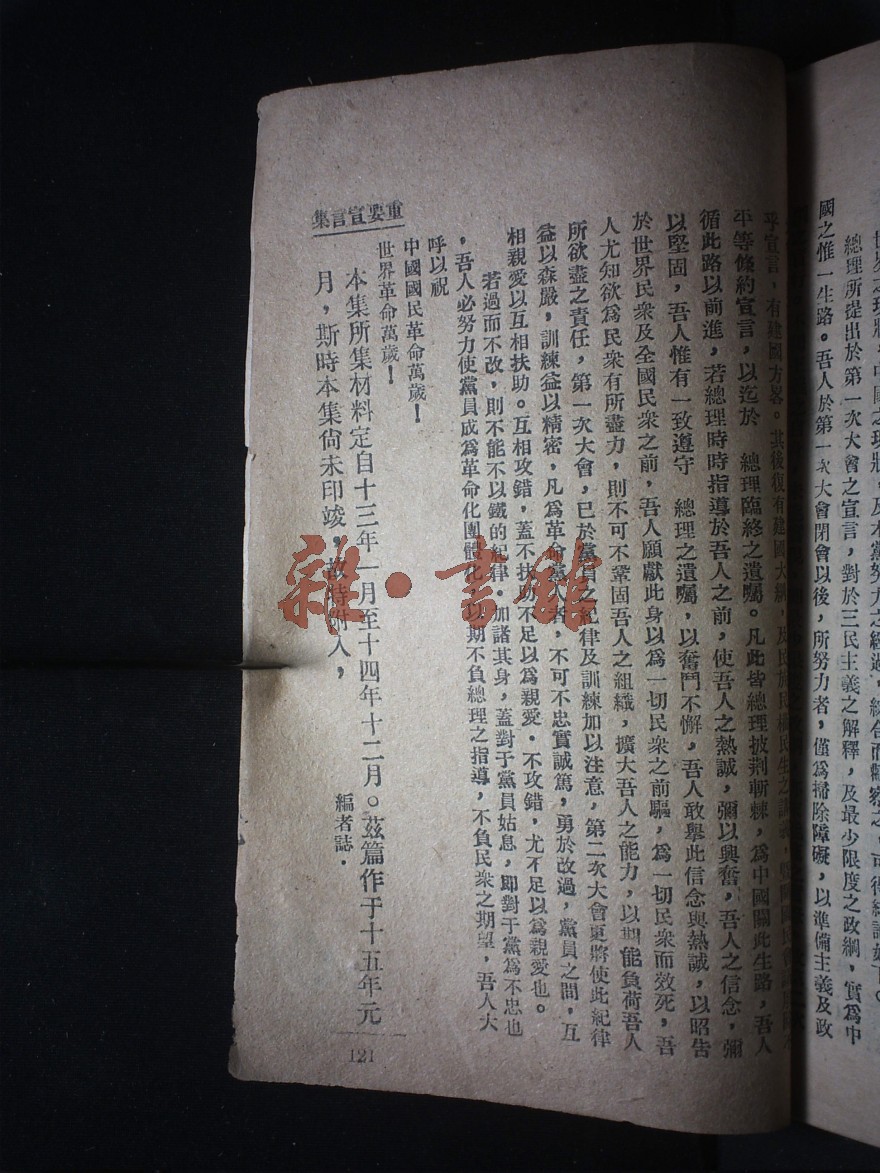 總理所提出於第一次大會之宣言，對於三民主義之解釋，及最少限度之政綱，實爲中
國之惟一生路。吾人於第一次大會閉會以後，所努力者，僅爲掃除障礙，以準備主義及政
乎宣言，有建國方畧。其後復有建國大綱，及民族民權民生之
平等條約宣言，以迄於　總理臨終之遺囑。凡此皆總理披荆斬棘，爲中國闢此生路，吾人
循此路以前進，若總理時時指導於吾人之前，使吾人之熱誠，彌以興奮，吾人之信念，彌
以堅固，吾人惟有一致遵守　總理之遺囑，以奮鬥不懈，吾人敢舉此信念與熱誠，以昭告
於世界民衆及全國民衆之前，吾人願獻此身以爲一切民衆之前驅，爲一切民衆而效死，吾
人尤知欲爲民衆有所盡力，則不可不鞏固吾人之組織，擴大吾人之能力，以期能負荷吾人
所欲盡之責任，第一次大會，已於黨員之紀律及訓練加以注意，第二次大會更將使此紀律
益以森嚴，訓練益以精密，凡爲革命黨者，不可不忠實誠篤，勇於改過，黨員之間，互
相親愛以互相扶助。互相攻錯，蓋不扶助不足以爲親愛．不攻錯，尤不足以爲親愛也。
若過而不改，則不能不以鐵的紀律．加諸其身，蓋對于黨員姑息，即對于黨爲不忠也
，吾人必努力使黨員成爲革命化團體化，以期不負總理之指導，不負民衆之期望，吾人大
呼以祝
中國國民革命萬歲！
世界革命萬歲！
本集所集材料定自十三年一月至十四年十二月。茲篇作于十五年元
月，斯時本集尙未印竣，故特附入，
編者誌．
重要宣言集
121
雜·書館